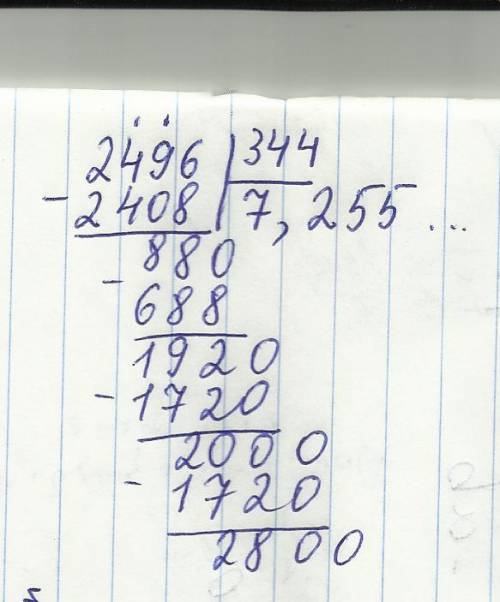 2496 344
- 2408 7,255...
880
- 688
1920
- 1720
2000
- 1720
2800